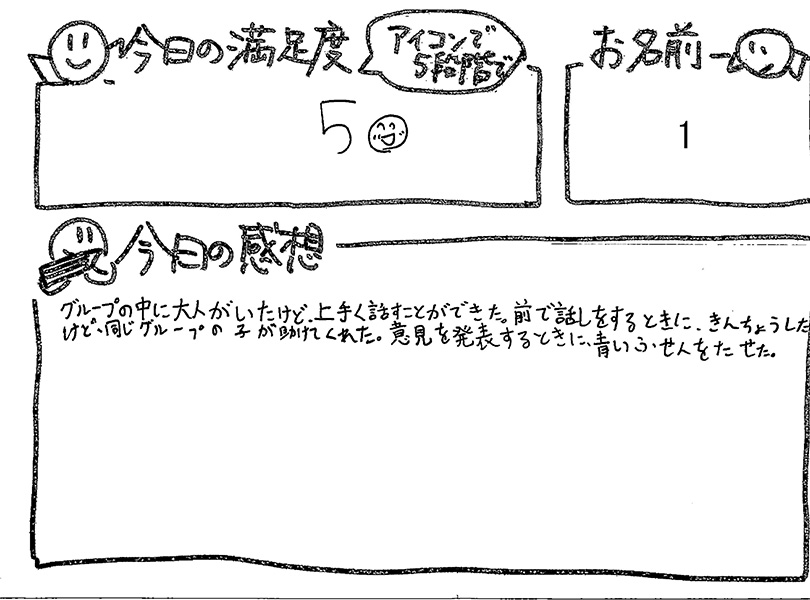 今日の満足度
アイコンで
5段階で
お名前
5
1
今日の感想
グループの中に大人がいたけど、上手く話すことができた。前で話しをするときに、きんちょうした
けど、同じグループの子が助けてくれた。意見を発表するときに、青いふせんをたせた。